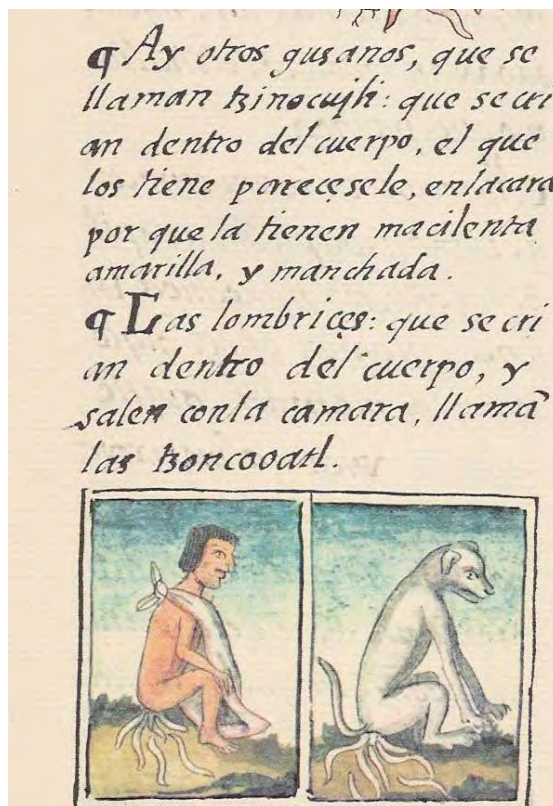 ¶ Ay otros gusanos, que se
llaman tzinocujli: que se cri
an dentro del cuerpo, el que
los tiene pareçesele, enlacara
por que la tienen macilenta
amarilla, y manchada.
¶ Las lombrices: que se cri
an dentro del cuerpo, y
salen conla camara, llamã
las tzoncooatl.